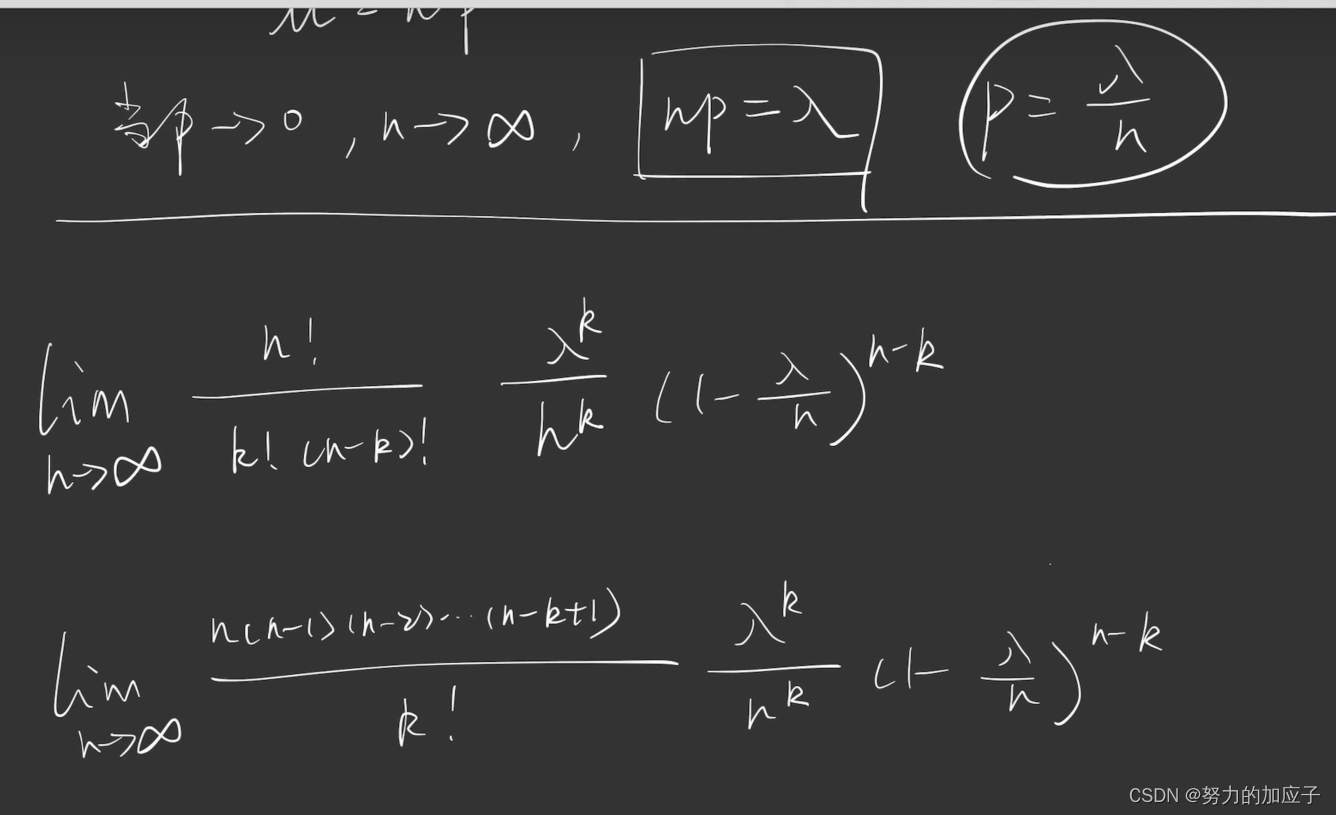 μ = np
当p → 0 , n → ∞ , np = λ p = λ/n
lim n→∞ n! / k! (n-k)! λ^k / n^k (1 - λ/n)^{n-k}
lim n→∞ n(n-1)(n-2)⋯(n-k+1) / k! λ^k / n^k (1 - λ/n)^{n-k}
CSDN @努力的加应子